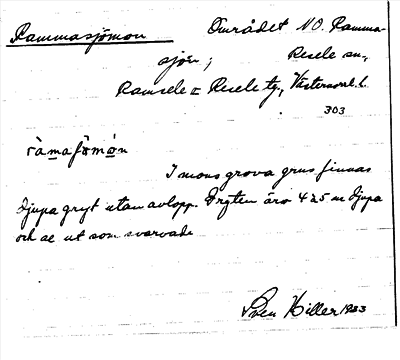 Rammasjömon Området NO. Ramma-
sjön; Resele sn,
Ramsele o Resele tg, Västernorrl. l.
303
ràmaʃömón
I mons grova grus finnas
djupa gryt utan avlopp. Grytén äro 4 25 m djupa
och se ut som svarvade
Sven Hiller 1933